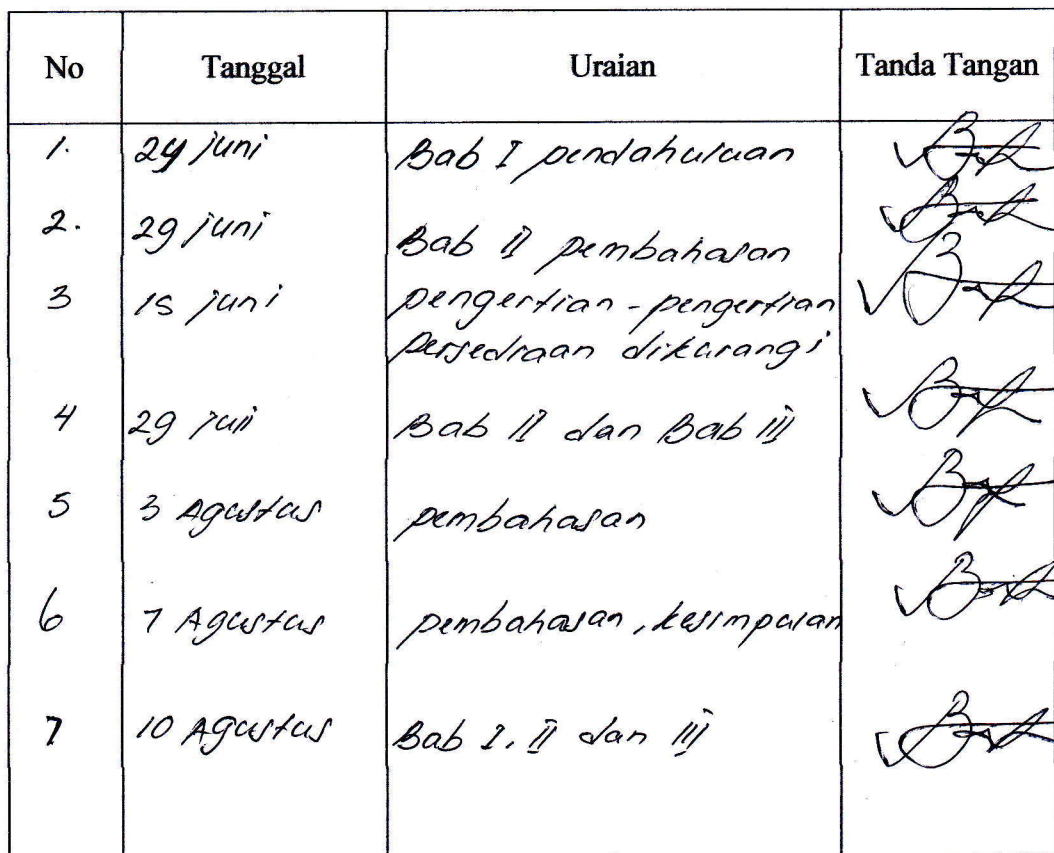 No Tanggal Uraian Tanda Tangan
1. 24 juni Bab I pendahuluan
2. 29 juni Bab II pembahasan
3 15 juni pengertian-pengertian
persediaan dikurangi
4 29 juli Bab II dan Bab III
5 3 Agustus pembahasan
6 7 Agustus pembahasan, kesimpulan
7 10 Agustus Bab I, II dan III